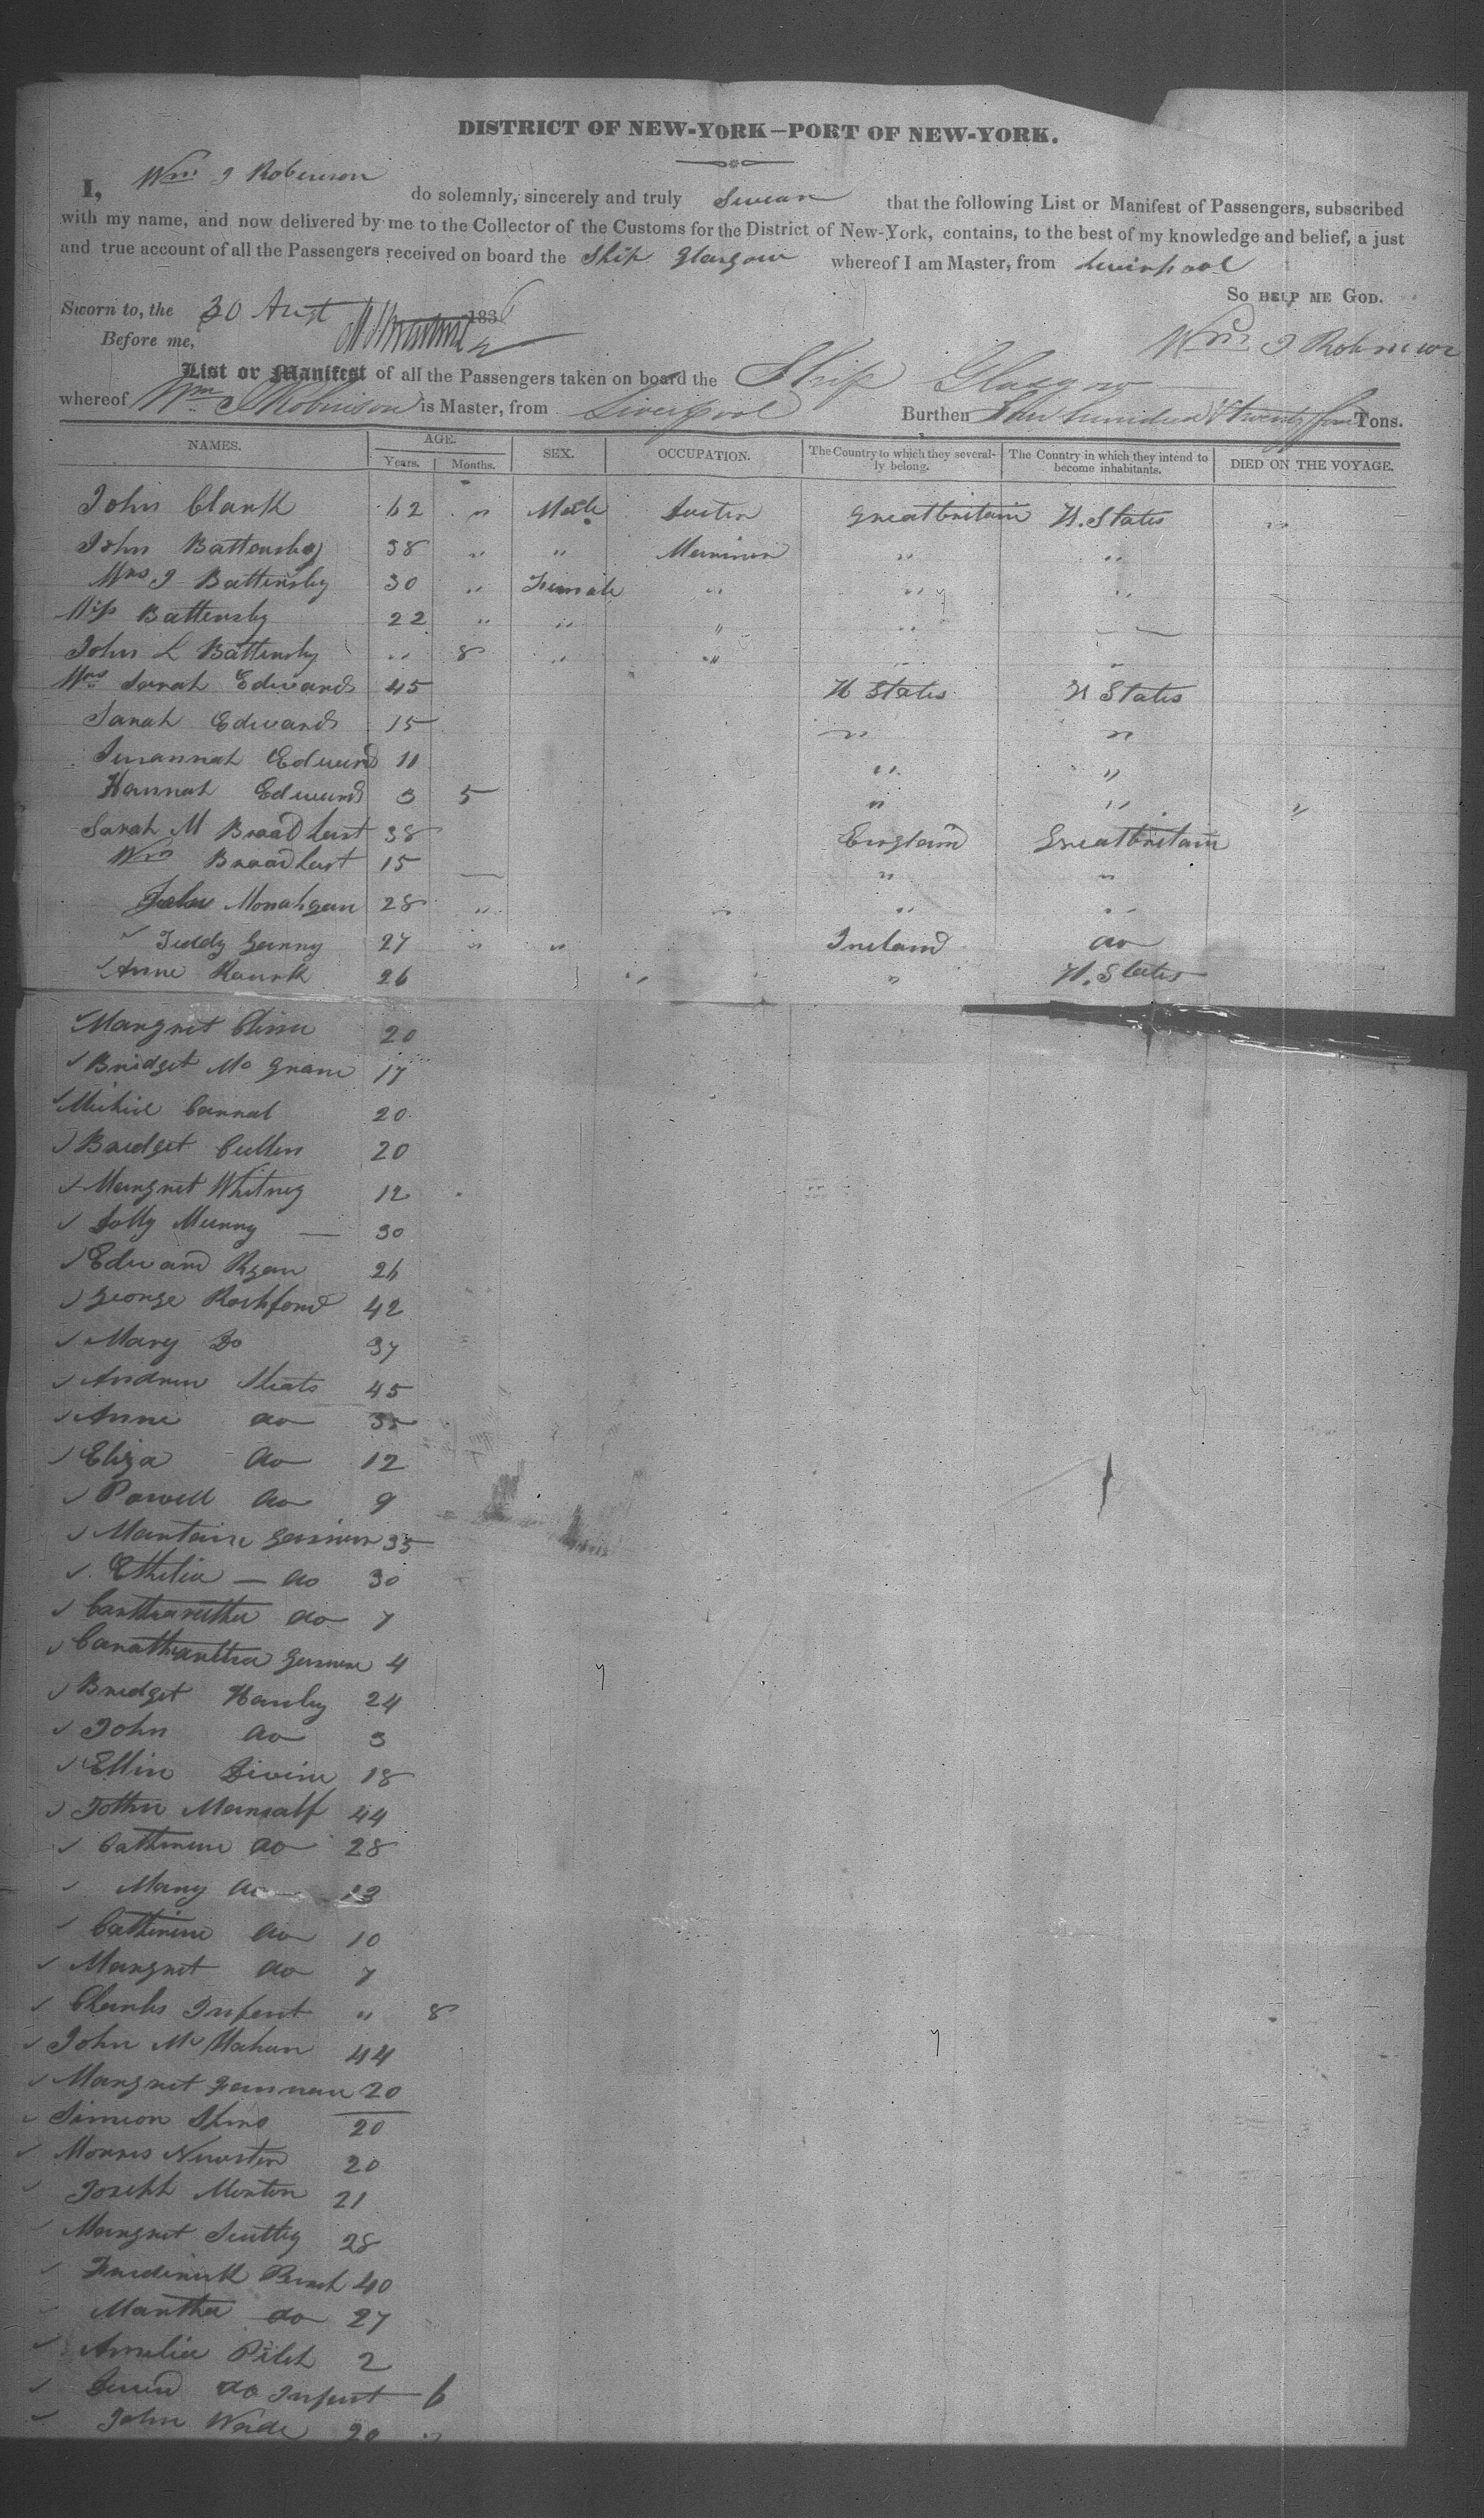 DISTRICT OF NEW-YORK—PORT OF NEW-YORK.
I, Wm J Robinson do solemnly, sincerely and truly Swear that the following List or Manifest of Passengers, subscribed
with my name, and now delivered by me to the Collector of the Customs for the District of New-York, contains, to the best of my knowledge and belief, a just
and true account of all the Passengers received on board the Ship Glasgow whereof I am Master, from Liverpool
So HELP ME GOD.
Sworn to, the 30 Aust 1836
Before me,
Wm J Robinson
List or Manifest of all the Passengers taken on board the Ship Glasgow
whereof Wm J Robinson is Master, from Liverpool Burthen hundred & twenty Tons.
NAMES. AGE. SEX. OCCUPATION. The Country to which they severally belong. The Country in which they intend to become inhabitants. DIED ON THE VOYAGE.
Years. Months.
John Clark 62 " Male Great britain U. States "
John Battersby 38 " " " "
Mrs J Battersby 30 " Female " " "
Miss Battersby 22 " " " "
John L Battersby " 8 " " " "
Mrs Sarah Edwards 45 U States U States
Sarah Edwards 15 " "
Susannah Edwards 11 " "
Hannah Edwards 3 5 " " "
Sarah M Broadhust 38 England Great britain
Wm Broadhust 15 " "
John Monahgan 28 " " " "
Teddy Ganny 27 " " Ireland do
Anne Rourk 26 " " U. States
Margret 20
Bridget Mc Grane 17
20
Bridget Cullen 20
Margret Whitney 12
Murry 30
Edward Ryan 26
George Rochford 42
Mary Do 37
Andrew 45
Anne do 35
Eliza do 12
Powell do 9
35
do 30
do 7
4
Bridget Hanley 24
John do 3
Ellin Divine 18
John 44
Catherine do 28
Mary do 13
Catherine do 10
Margret do 7
Charles Infant " 8
John Mc Mahan 44
Margret 20
Simeon 20
Morris Newston 20
Joseph Morton 21
Margret 28
40
Martha do 27
Amelia 2
do Infant 6
John Wade 20 "